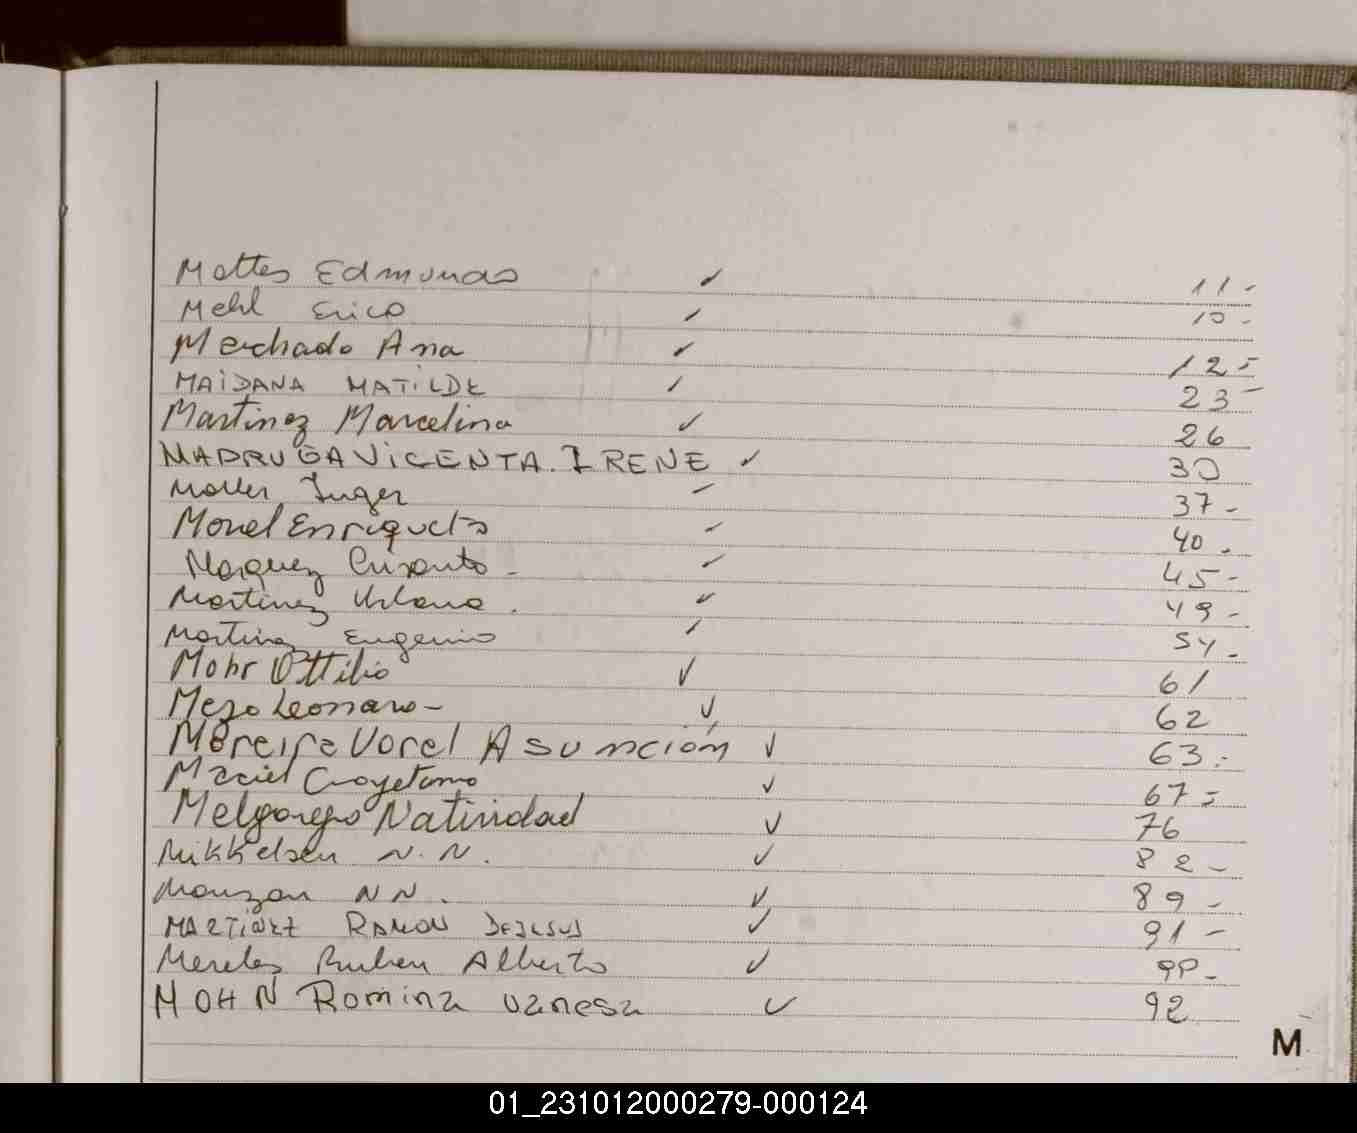 Mattes Edmundo ✓ 11-
Mehl Erico ✓ 10-
Merchado Ana ✓ 12-
MAIDANA MATILDE ✓ 23-
Martinez Marcelina ✓ 26
MADRUGA VICENTA. IRENE ✓ 30
Moller Inger ✓ 37-
Morel Enriqueta ✓ 40.
Marquez Crisanto - ✓ 45-
Martinez Urbano. ✓ 49-
Martinez Eugenio ✓ 54-
Mohr Ottilio ✓ 61
Meza Leonardo- ✓ 62
Moreira Vorel Asunción ✓ 63.-
Maciel Cayetano ✓ 67-
Melgarejo Natividad ✓ 76
Mikkelsen N.N. ✓ 82-
Monzon NN. ✓ 89-
MARTINEZ RAMON DEJESUS ✓ 91-
Mereles Ruben Alberto ✓
MOHN Romina vanesa ✓ 92
M
01_231012000279-000124